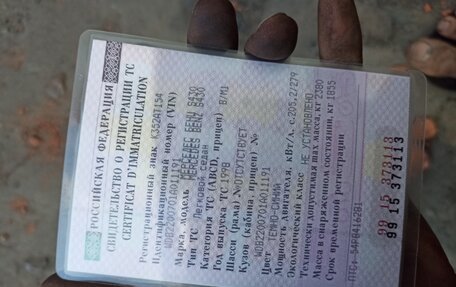 РОССИЙСКАЯ ФЕДЕРАЦИЯ
СВИДЕТЕЛЬСТВО О РЕГИСТРАЦИИ ТС
CERTIFICAT D'IMMATRICULATION
Регистрационный знак К352АТ154
Идентификационный номер (VIN)
WDB2200701A011191
Марка, модель MERCEDES BENZ S430
MERCEDES BENZ S430
Тип ТС Легковой седан
Категория ТС (ABCD, прицеп) B/M1
Год выпуска ТС 1998
Шасси (рама) № ОТСУТСТВУЕТ
Кузов (кабина, прицеп) №
WDB2200701A011191
Цвет ТЕМНО-СИНИЙ
Мощность двигателя, кВт/л. с. 205.2/279
Экологический класс НЕ УСТАНОВЛЕНО
Технически допустимая max масса, кг 2380
Масса в снаряженном состоянии, кг 1855
Срок временной регистрации
ПТС:
99 15 373113
99 15 373113